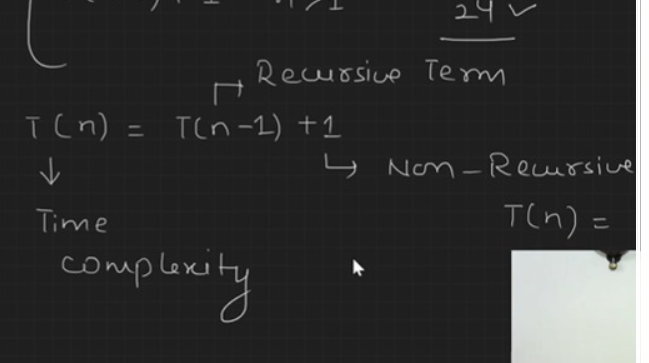 24 ✓
Recursive Term
T(n) = T(n-1) + 1
↓ ↳ Non-Recursive
Time T(n) =
complexity